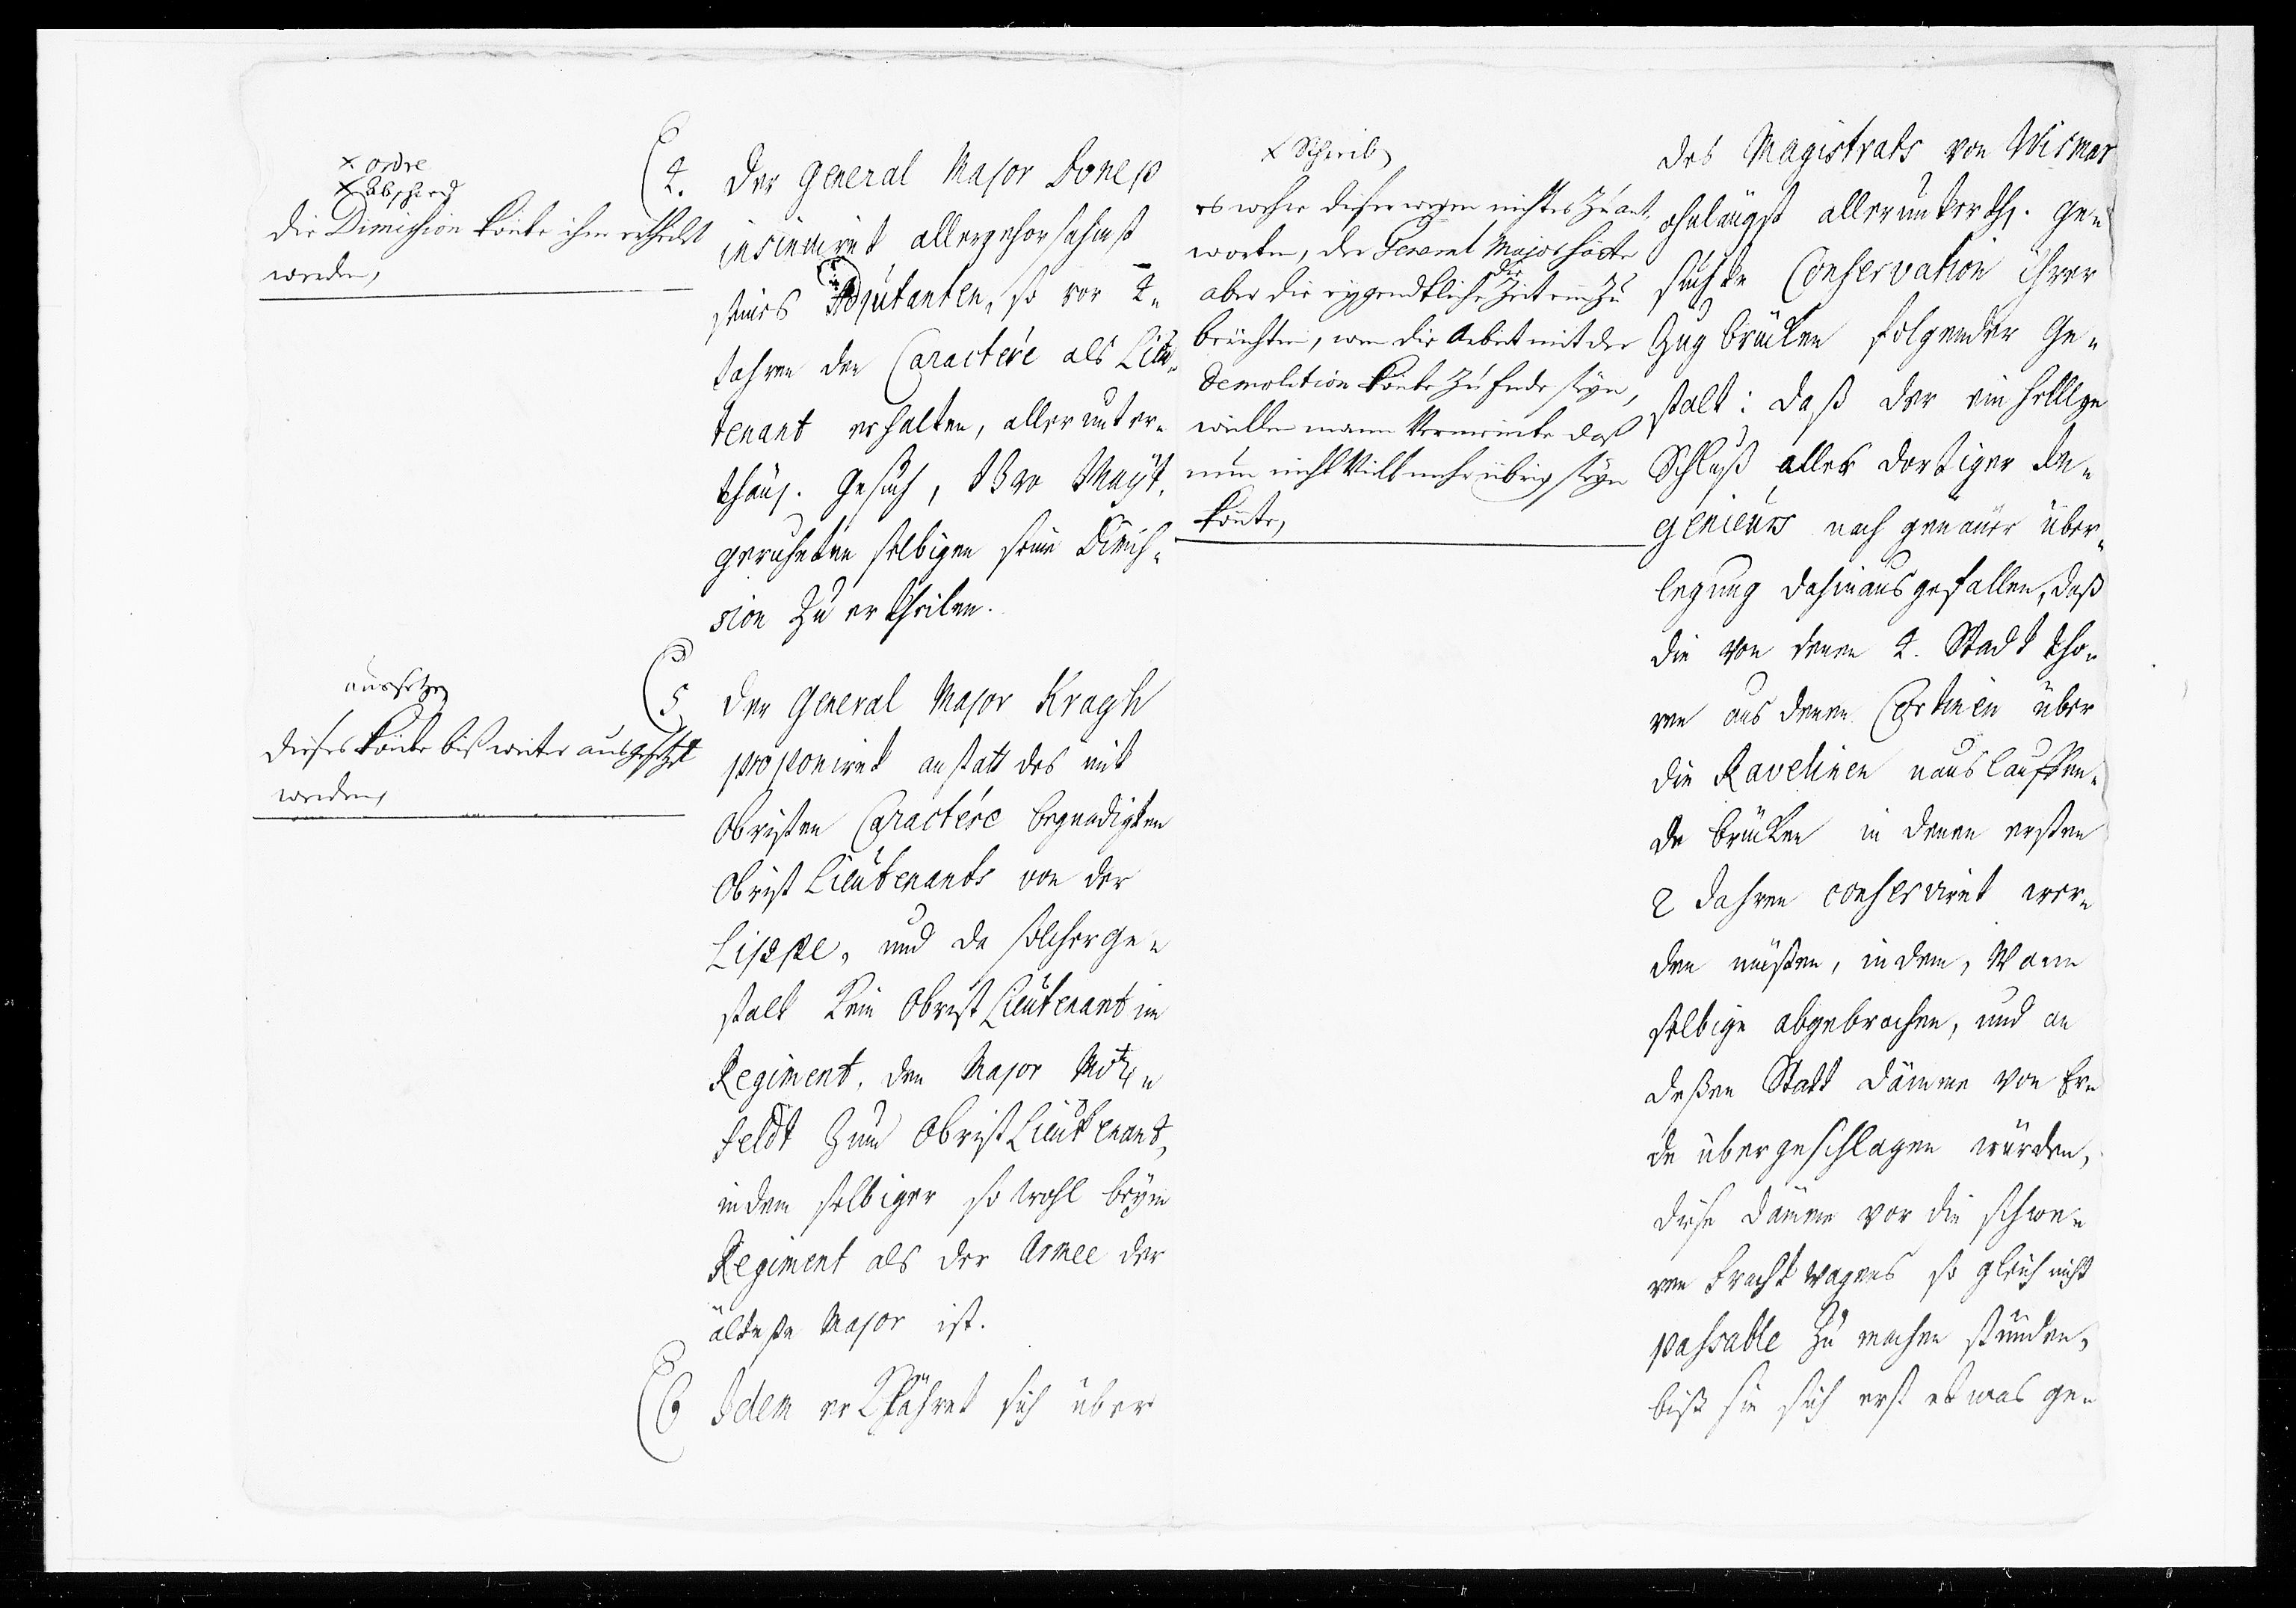 x ordre
x Abscheid
die Dimission könte ihm ertheilet
werden,
4. Der General Major Donep
insinuiret allergehorsahmst
seines Adjutanten, so vor 4.
Jahren den Caractére als Lieu-
tenant erhalten, allerunter-
thänig. Gesuch, Ewr Mayt.
geruheten selbigen seine Dimis-
sion zu ertheilen.
aussetzen
dieses könte biß weiter ausgesetzet
werden,
5 Der General Major Kragh
proponiret anstatt des mit
Obristen Caractére begnadigten
Obrist Lieutenants von der
Lippe, und da solcherge-
stalt kein Obrist Lieutenant im
Regiment, den Major
feldt zum Obrist Lieutenant,
indem selbiger so wohl beÿm
Regiment als der Armee der
älteste Major ist.
6 Idem erklähret sich über
x Schreib
es wehre dieserwegen nichts zu ant-
worten, der General Major hätte
aber die eygendtliche Zeit einzu
die
berichten, wen die Arbeit mit der
Demolition könte zu Ende seÿn,
weillen mann Vermeinte daß
nun nicht Viell mehr übrig seÿn
könte,
des Magistrats von Wismar
ohnlängst allerunterthg. ge-
suchte Conservation ihrer
Zugbrücken folgender Ge-
stalt: daß der einhellige
Schluß aller dortiger In-
genieurs nach genauer über-
legung dahinaus gefallen, daß
die von denen 4. Stadt tho-
ren aus denen Cortinen über
die Ravelinen nauslauffen-
de brücken in denen ersten
2 Jahren conserviret wer-
den müßen, indem, Wann
selbige abgebrochen, und an
deßen Statt Dämme von Er-
de übergeschlagen würden,
diese Dämme vor die schwe-
ren Frachtwagens so gleich nicht
passable zu machen stünden,
biß sie sich erst etwas ge-